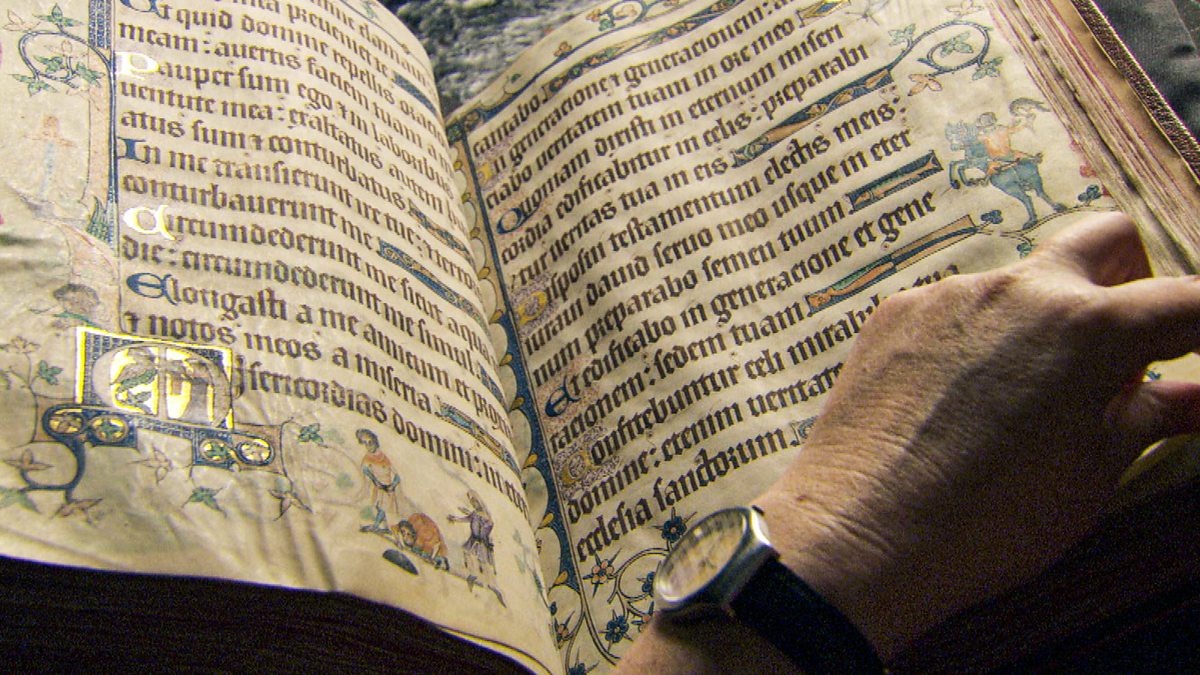 mea preueniet te
Ut quid domine repellis oracio
meam : auertis faciem tuam a
Pauper sum ego ⁊ in laboribus
uentute mea : exaltatus autem
atus sum ⁊ conturbatus
In me transierunt ire tue : ⁊ terro
conturbauerunt me
Circumdederunt me sicut aqua
die : circumdederunt me simul
Elongasti a me amicum et prox
⁊ notos meos a miseria
Misericordias domini : in eter
cantabo
In generacione et generacionem : a
ciabo ueritatem tuam in ore meo
Quoniam dixisti in eternum miseri
cordia edificabitur in celis : preparabi
tur ueritas tua in eis
Disposui testamentum electis meis :
iuraui dauid seruo meo usque in eter
num preparabo semen tuum
Et edificabo in generacione et gene
racionem : sedem tuam
Confitebuntur celi mirabi
domine : etenim ueritate
ecclesia sanctorum